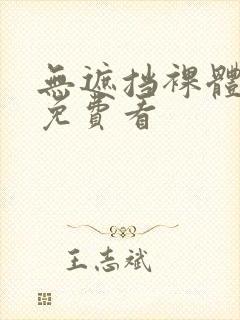 無遮挡裸體
免費看
王志斌